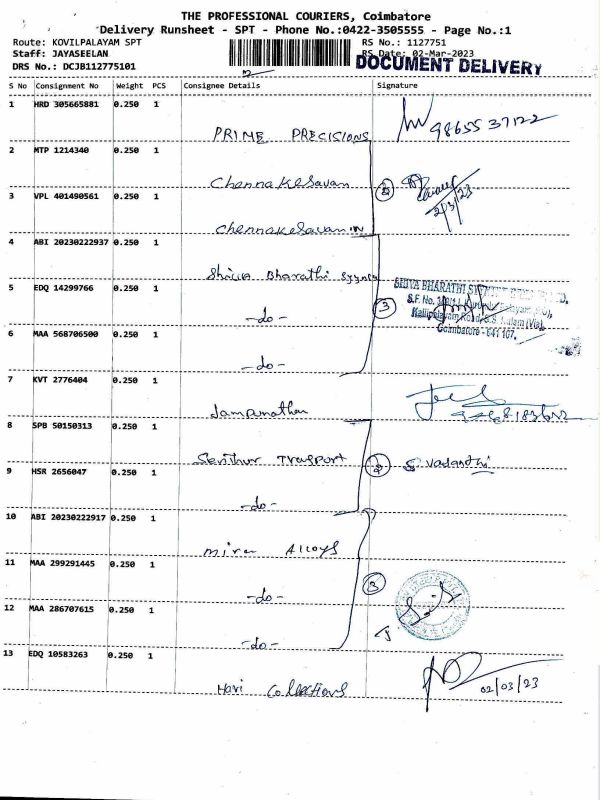 THE PROFESSIONAL COURIERS, Coimbatore
Delivery Runsheet - SPT - Phone No.:0422-3505555 - Page No.:1
Route: KOVILPALAYAM SPT
RS No.: 1127751
Staff: JAYASEELAN
RS Date: 02-Mar-2023
DRS No.: DCJB112775101
DOCUMENT DELIVERY
S No Consignment No Weight PCS Consignee Details Signature
1 HRD 305665881 0.250 1
PRIME PRECISIONS 9865537122
2 MTP 1214340 0.250 1
Chennakesavan 2
2/3/23
3 VPL 401490561 0.250 1
Chennakesavan
4 ABI 20230222937 0.250 1
Shiva Bharathi
5 EDQ 14299766 0.250 1
SHIVA BHARATHI
S.F. No.
-do- 3
Coimbatore - 641 107.
6 MAA 568706500 0.250 1
-do-
7 KVT 2776404 0.250 1
8 SPB 50150313 0.250 1
Transport 2
9 HSR 2656047 0.250 1
-do-
10 ABI 20230222917 0.250 1
Alloys
11 MAA 299291445 0.250 1
-do- 3
12 MAA 286707615 0.250 1
-do-
13 EDQ 10583263 0.250 1
Hari Collections 02/03/23